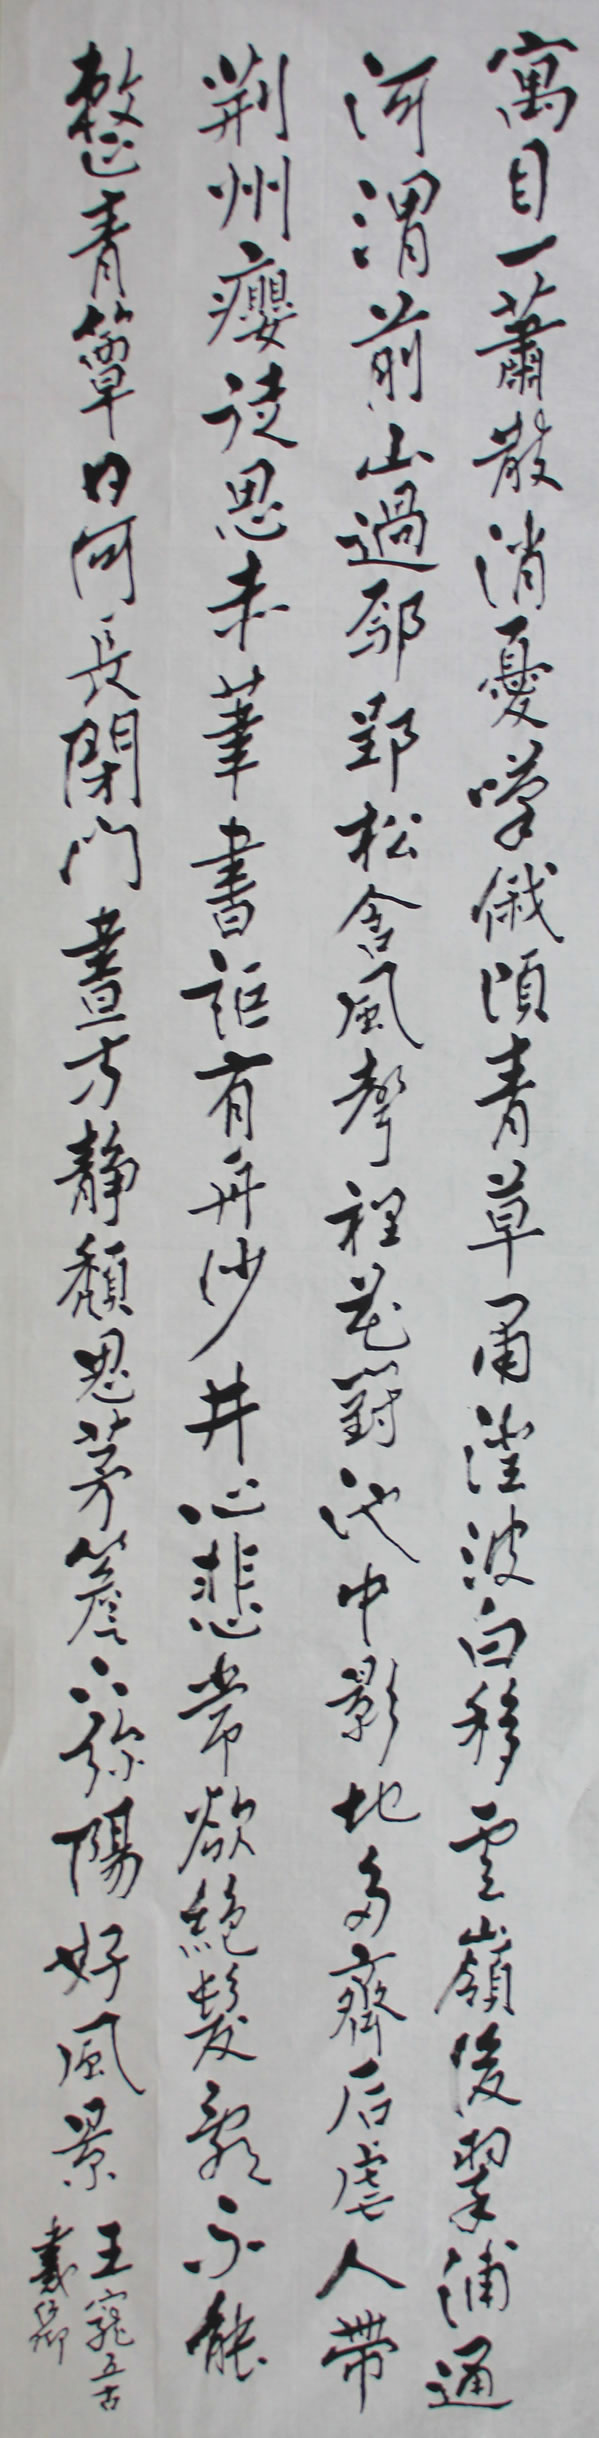 寓目一蕭散消憂嘆俄頃青草肅澄波白移雲嶺後翠浦通
河渭前山過鄢郢松含風聲裡花對池中影地多齊后虐人帶
荊州癭徒思赤筆書詎有丹沙井心悲常欲絕髮亂不能
整青簟日何長閑門晝方靜頹思茅簷下弥陽好風景
王寵五古